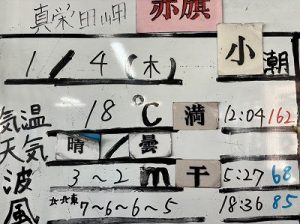 真栄田岬 赤旗
1/4(木) 小潮
気温 18℃ 満 12:04 162
天気 晴/曇
波 3~2m 干 5:27 68
風 北北東 7-6-6-5 18:36 85